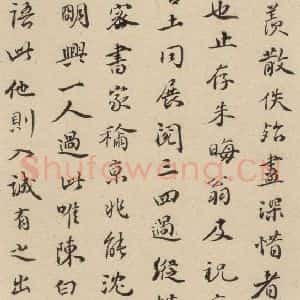 羨散佚殆盡深惜者
也止存朱晦翁及祝
土同展閱三四過縱
書家稱京兆能沈
明興一人過此唯陳白
語此他則入誠有之出
Shufawang.Cn